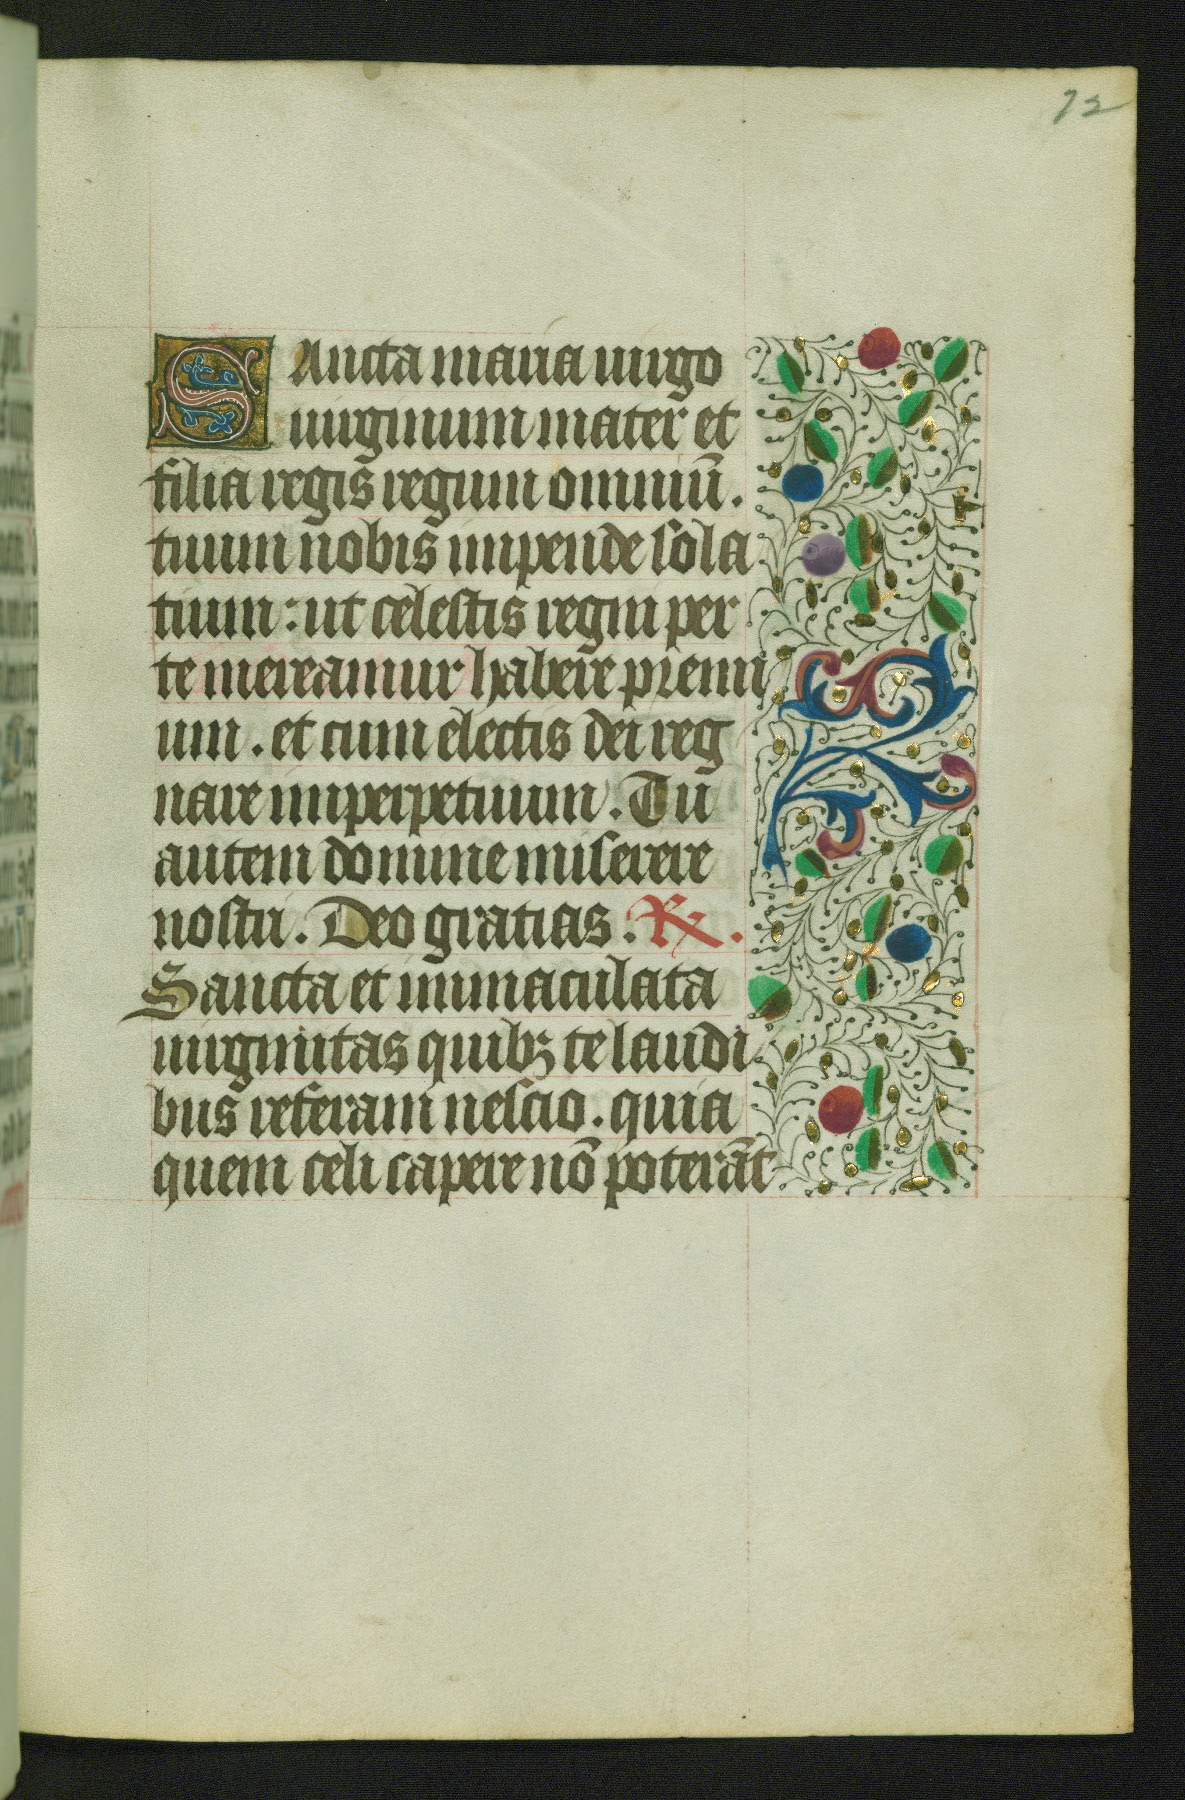 72
SAncta maria uirgo
uirginum mater et
filia regis regum omniū.
tuum nobis impende sola
tium: ut celestis regni per
te mereamur habere premi
um. et cum electis dei reg
nare imperpetuum. Tu
autem domine miserere
nostri. Deo gratias. ℟.
Sancta et immaculata
uirginitas quibꝫ te laudi
bus referam nescio. quia
quem celi capere nō poterāt